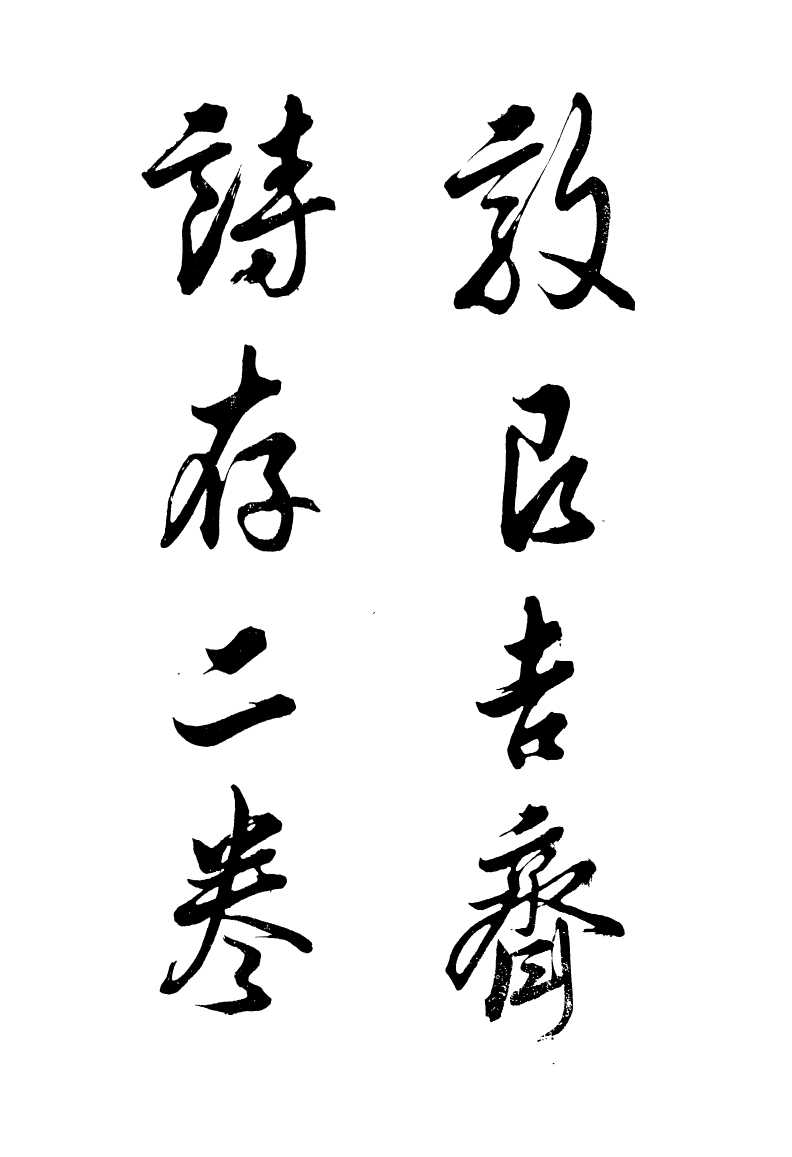 敦艮吉齋
詩存二卷